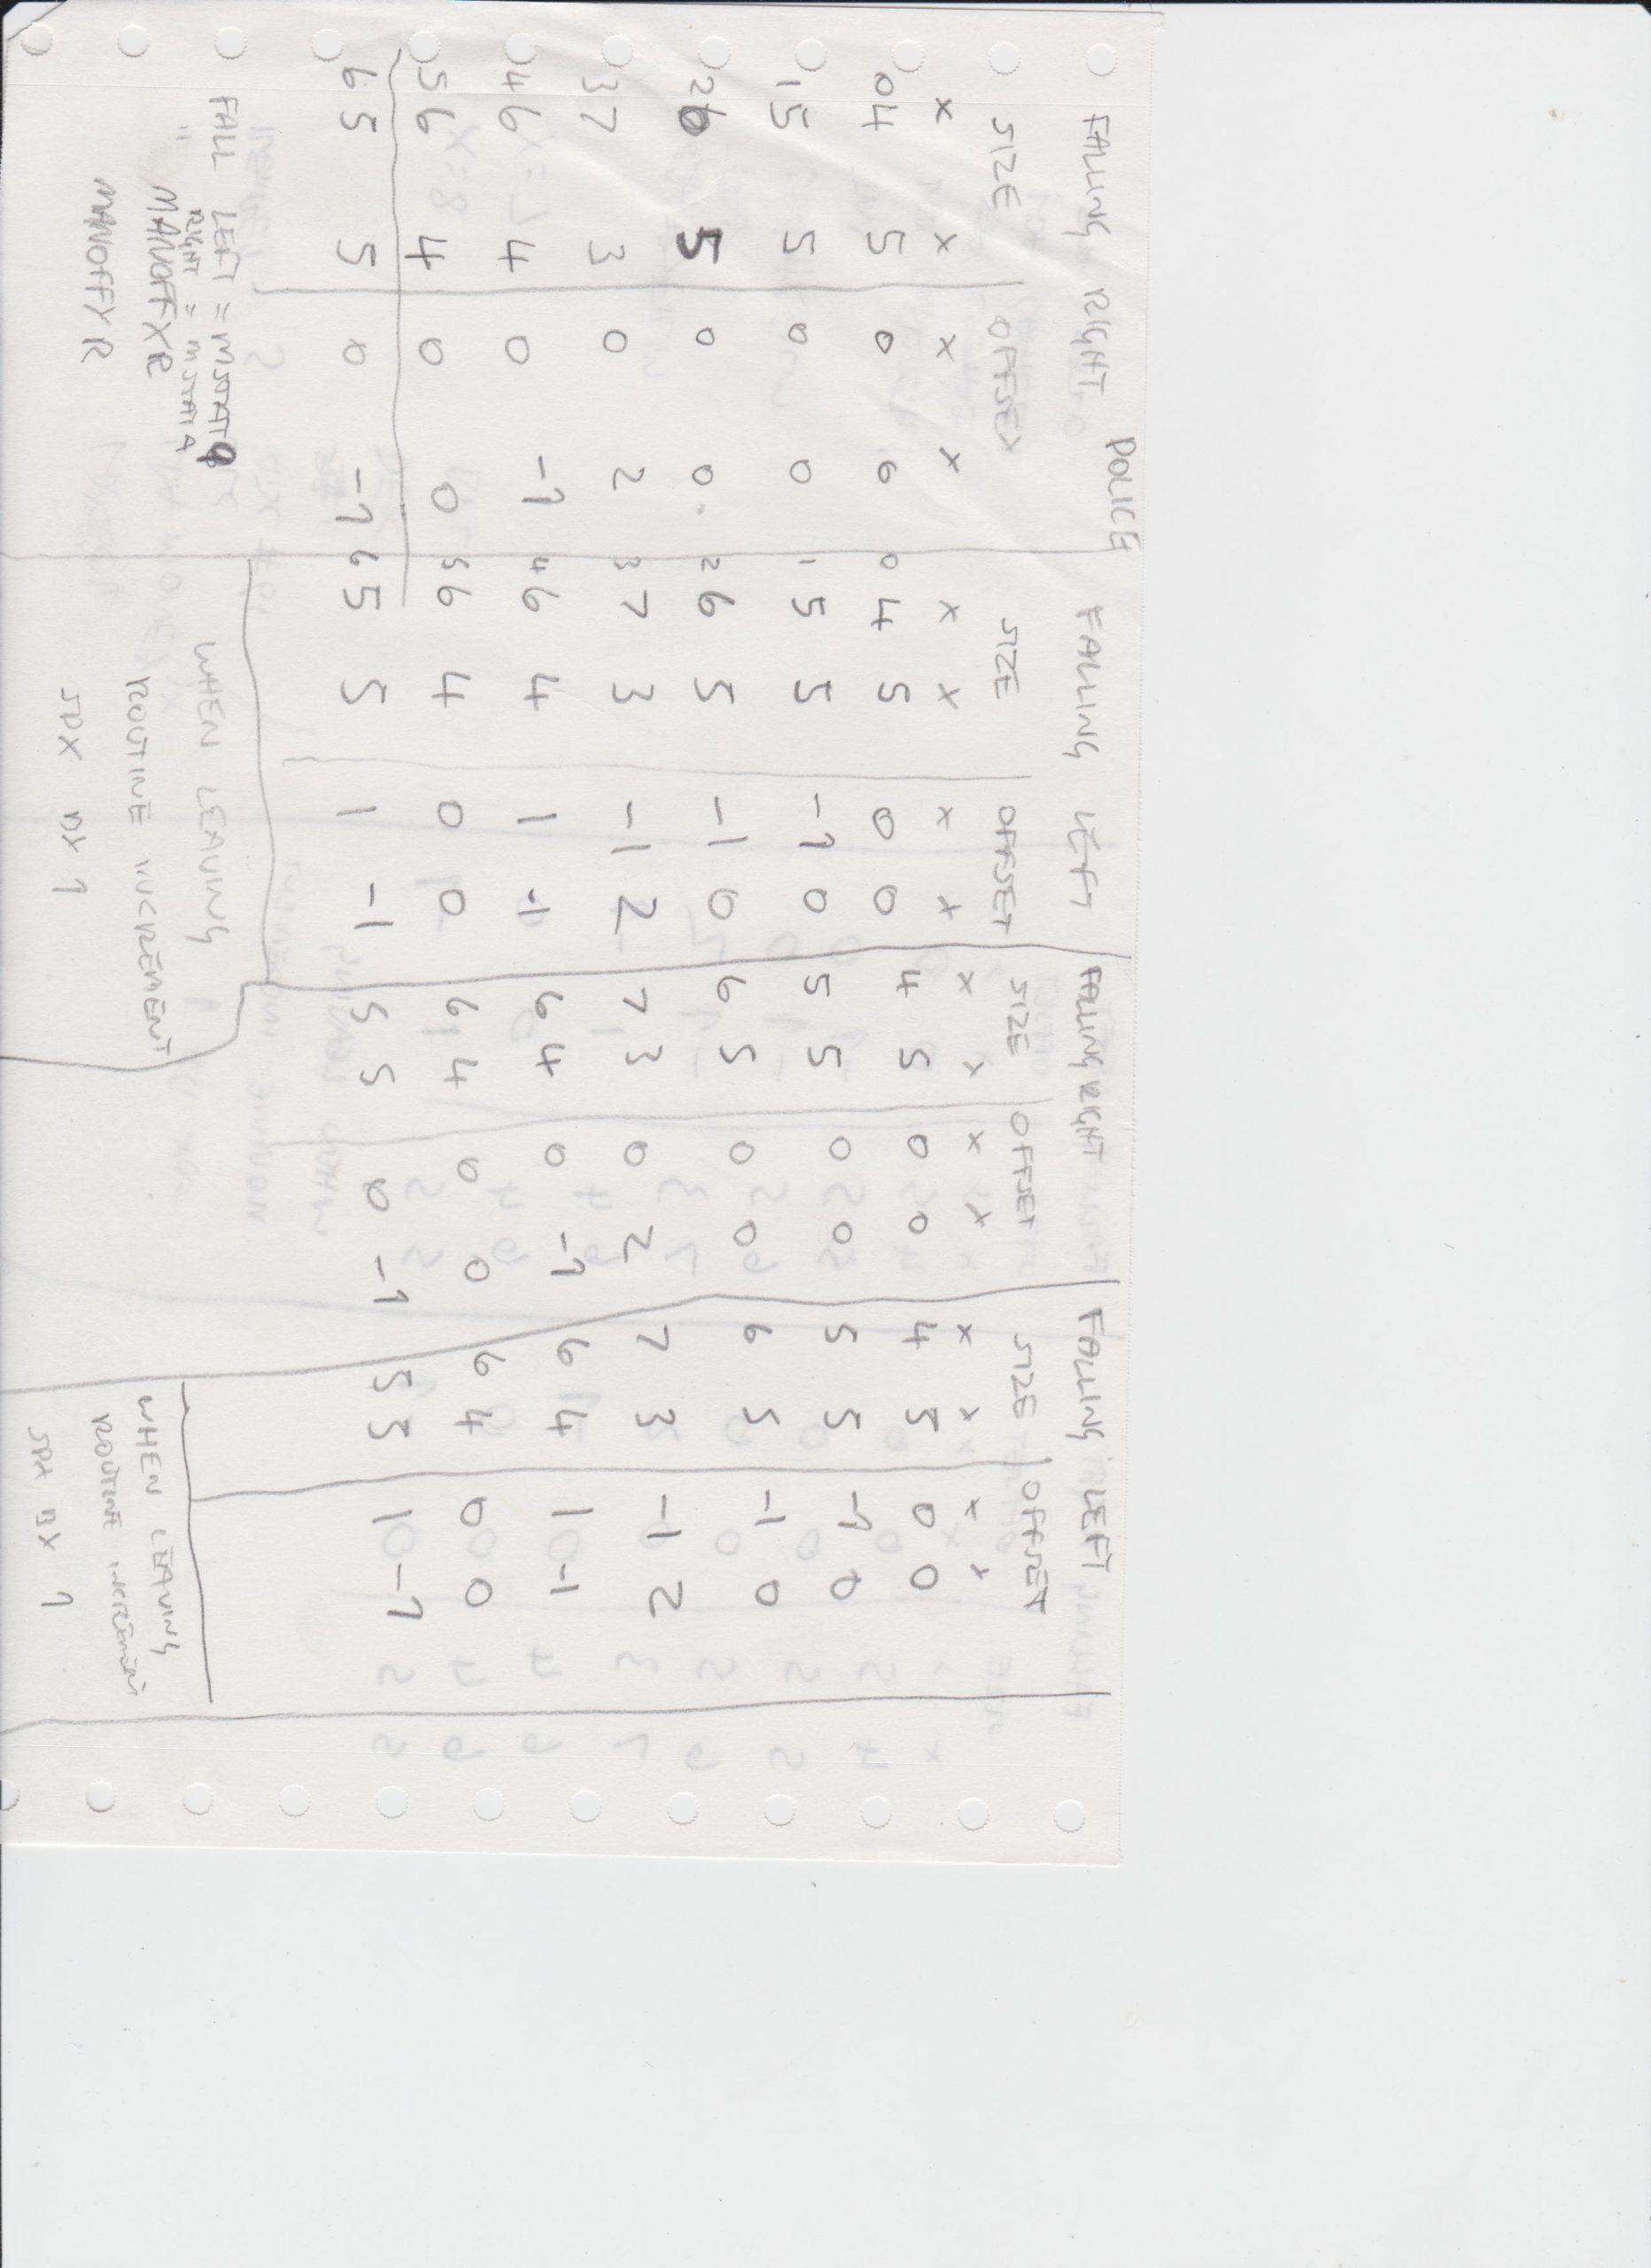 POLICE
FALLING RIGHT FALLING LEFT FALLING RIGHT FALLING LEFT
SIZE OFFSET SIZE OFFSET SIZE OFFSET SIZE OFFSET
x x x x x x x x x x x x x x x x
0 4 5 0 0 0 4 5 0 0 4 5 0 0 4 5 0 0
1 5 5 0 0 1 5 5 -1 0 5 5 0 0 5 5 -1 0
2 6 5 0 0 2 6 5 -1 0 6 5 0 0 6 5 -1 0
3 7 3 0 2 3 7 3 -1 2 7 3 0 2 7 3 -1 2
4 6 4 0 -1 4 6 4 1 -1 6 4 0 -1 6 4 1 -1
5 6 4 0 0 5 6 4 0 0 6 4 0 0 6 4 0 0
6 5 5 0 -1 6 5 5 1 -1 5 5 0 -1 5 5 1 -1
FALL LEFT = MSTAT 9
" RIGHT = MSTAT 4
MANOFFXR
MANOFFYR
WHEN LEAVING
ROUTINE INCREMENT
SPX BY 1
WHEN LEAVING
ROUTINE INCREMENT
SPX BY 1